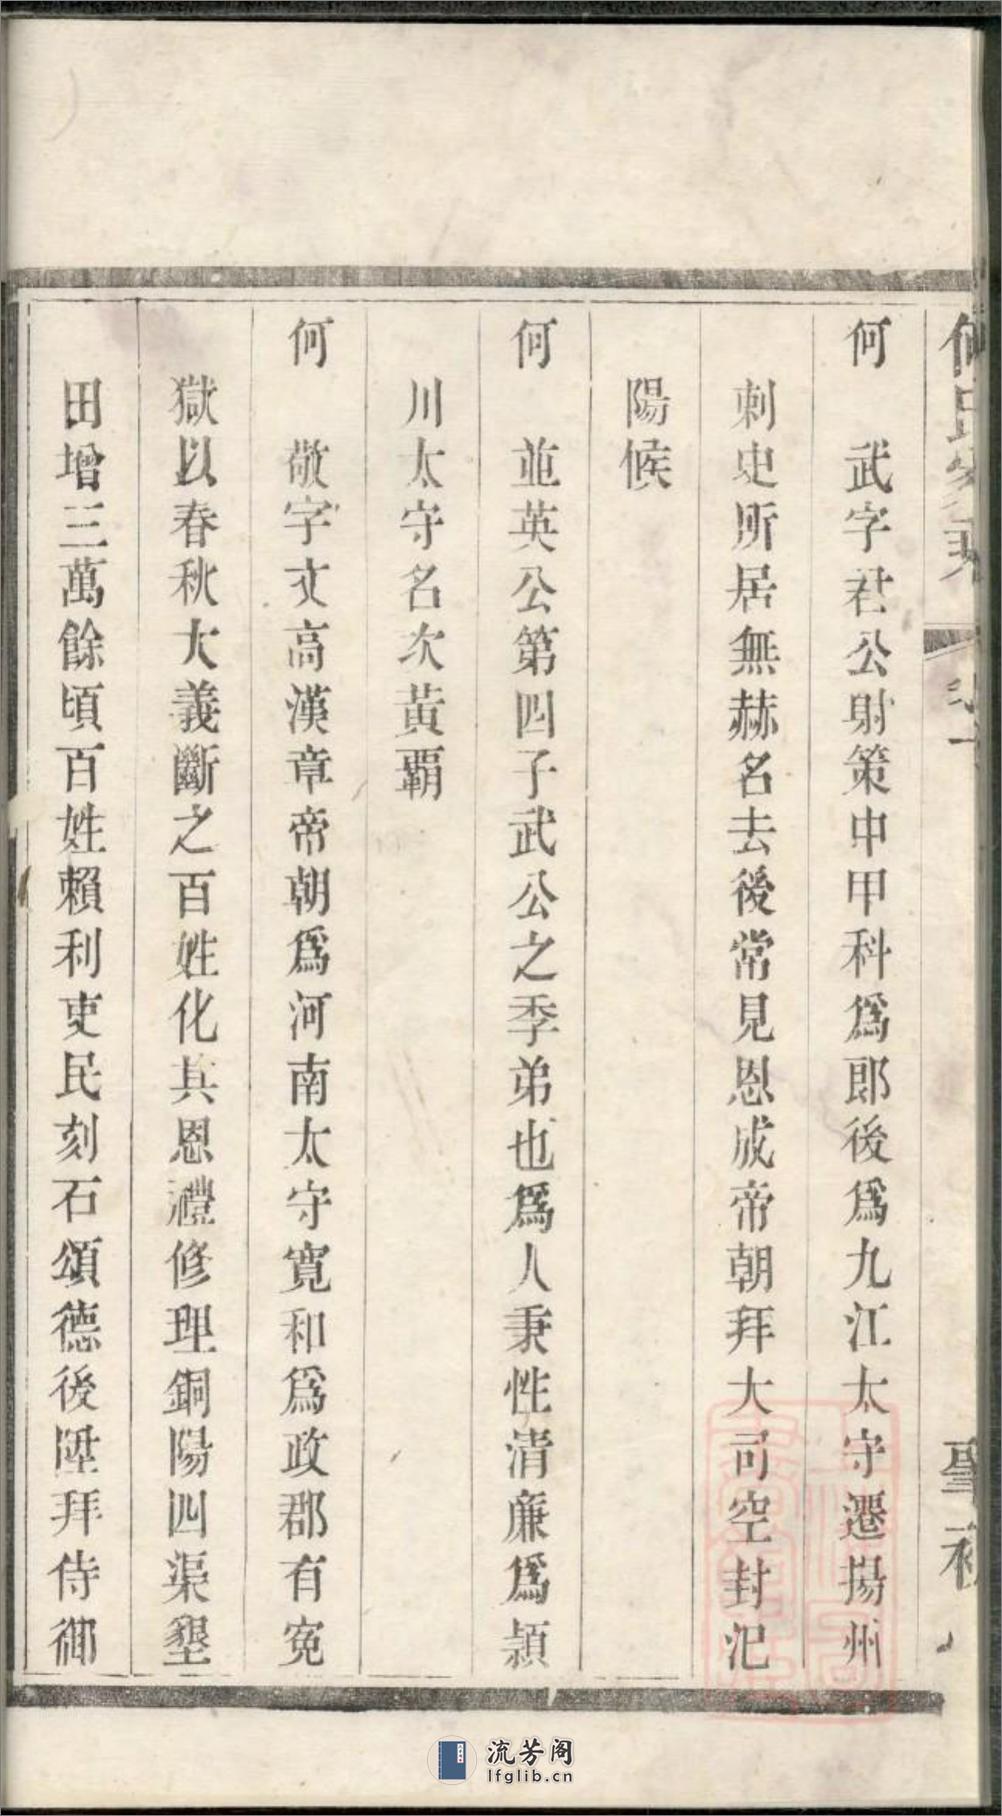 何　武字君公射策中甲科爲郎後爲九江太守遷揚州
刺史所居無赫名去後常見恩成帝朝拜大司空封汜
陽候
何　並英公第四子武公之季弟也爲人秉性清廉爲潁
川太守名次黃霸
何　敬字文高漢章帝朝爲河南太守寛和爲政郡有寃
獄以春秋大義斷之百姓化其恩禮修理銅陽四渠墾
田增三萬餘頃百姓賴利吏民刻石頌德後陞拜侍御
流芳阁
lfglib.cn